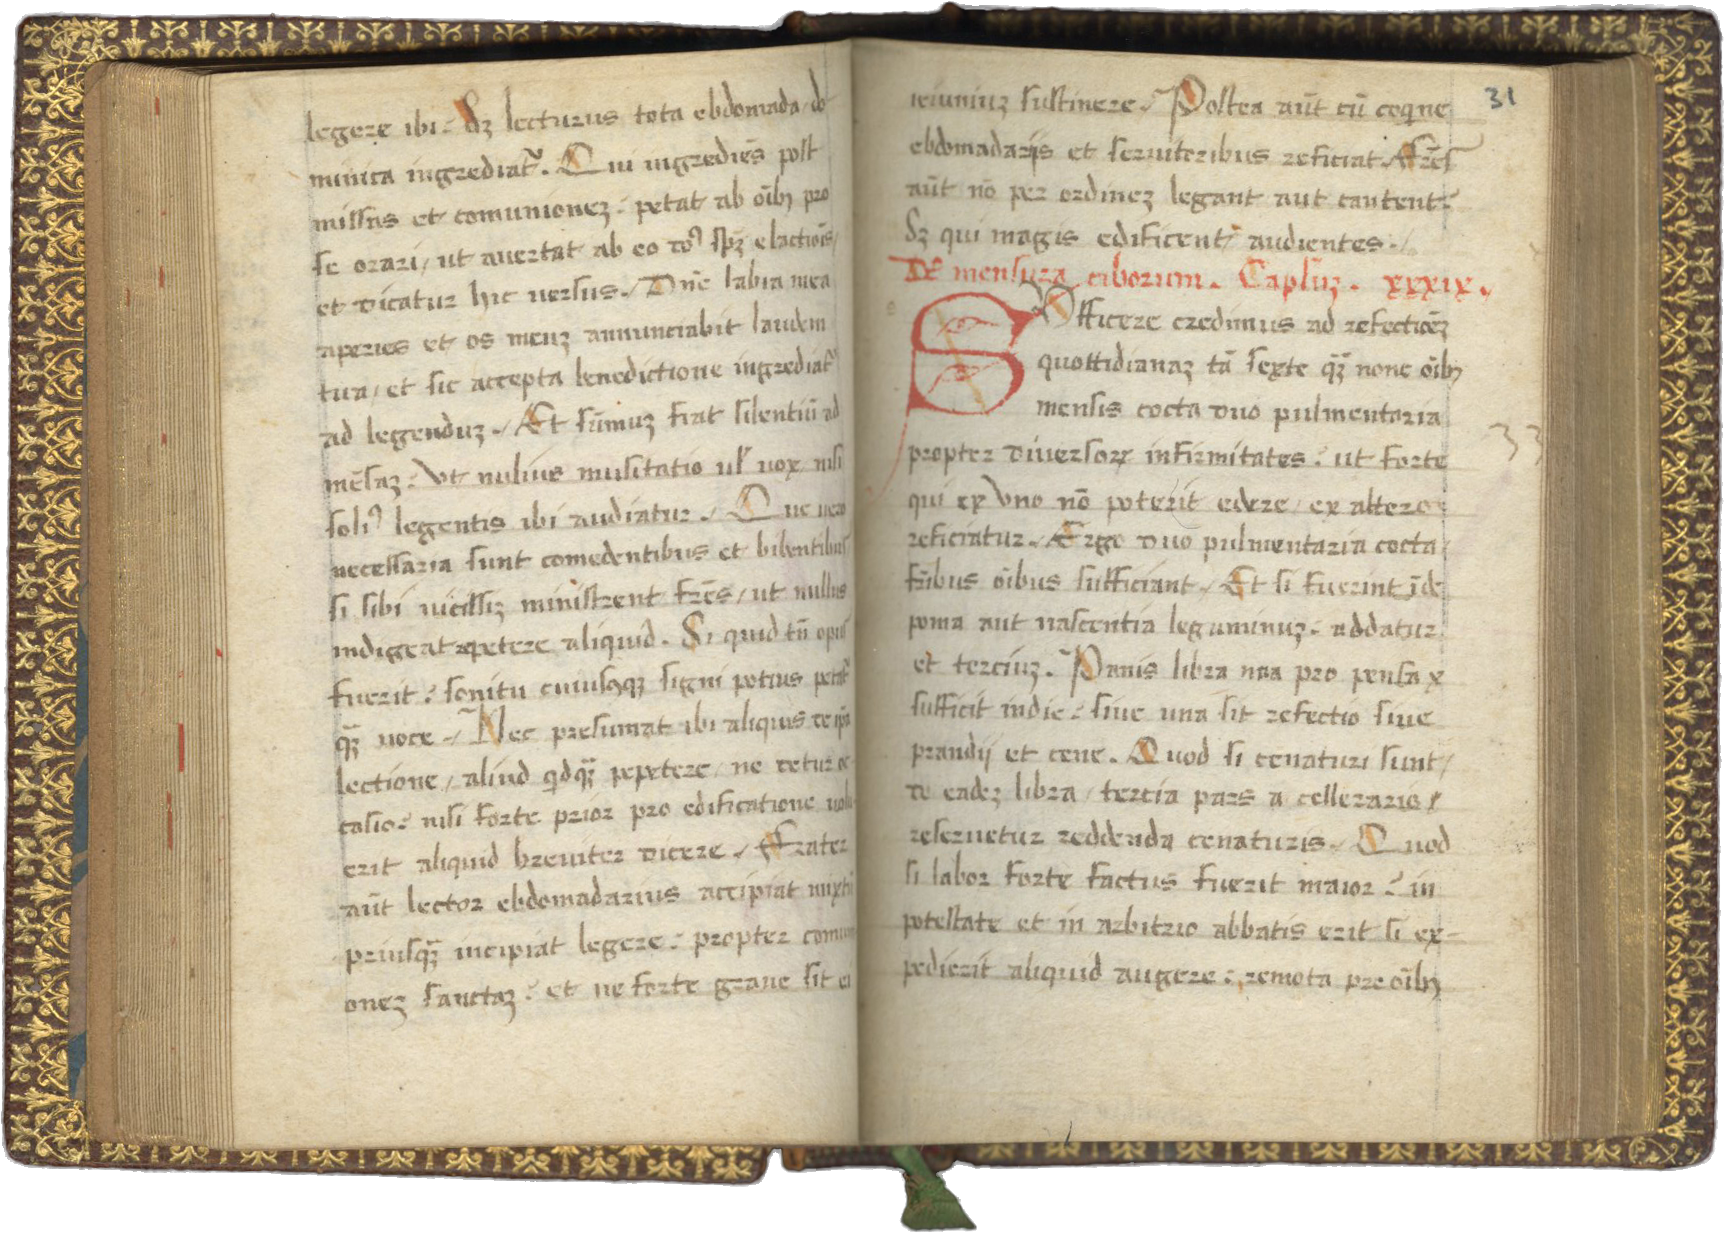 legere ibi: Sꝫ lecturus tota ebdomada, do
minica ingrediat᷑. Qui ingrediēs post
missas et comunioneꝫ: petat ab oībꝫ pro
se orari, ut avertat ab eo deꝰ spꝫ elactiōis,
et dicatur hic versus. Dn̄e labia mea
aperies et os meuꝫ annunciabit laudem
tua, et sic accepta benedictione ingrediat᷑
ad legenduꝫ. Et sūmuꝫ fiat silentiū ad
mēsaꝫ: Ut nulius musitatio ul̓ vox, nisi
soliꝰ legentis ibi audiatur. Que vero
necessaria sunt comedentibus et bibentibus
si sibi vicissiꝫ ministrent fr̄es, ut nullus
indigeat petere aliquid. Si quid tn̄ opus
fuerit: sonitu cuiusqꝫ signi potius petat᷑
qꝫ̄ voce. Nec presumat ibi aliquis de ip̄a
lectione, aliud qdqꝫ̄ pepetere, ne detur oc
casio: nisi forte prior pro edificatione volu
erit aliquid breviter dicere. Frater
aūt lector ebdomadarius accipiat mixtū
priusqꝫ̄ incipiat legere: propter comuni
oneꝫ sanctaꝫ: et ne forte grave sit ei
31
ieiuniuꝫ sustinere. Postea aūt cū coqine
ebdomadariis et servitoribus reficiat. Fr̄es
aūt nō per ordineꝫ legant aut cantent:
Sꝫ qui magis edificent audientes.
De mensura ciborum. Capl̄uꝫ. xxxix.
Sufficere credimus ad refectiōeꝫ
quottidianaꝫ tā sexte qꝫ̄ none oībꝫ
mensis cocta duo pulmentaria
33
propter diversoꝝ infirmitates: ut forte
qui ex uno nō poterit edere, ex altero
reficiatur. Ergo duo pulmentaria cocta
fr̄ibus oībus sufficiant. Et si fuerint īde
poma aut nascentia leguminuꝫ: addatur
et terciuꝫ. Panis libra una pro pensa x
sufficit indie: sive una sit refectio sive
prandij et cene. Quod si cenaturi sunt,
de eadeꝫ libra, tercia pars a cellerario,
reservetur reddenda cenaturis. Quod
si labor forte factus fuerit maior: in
potestate et in arbitrio abbatis erit si ex-
pedierit aliquid augere: remota pre oībꝫ